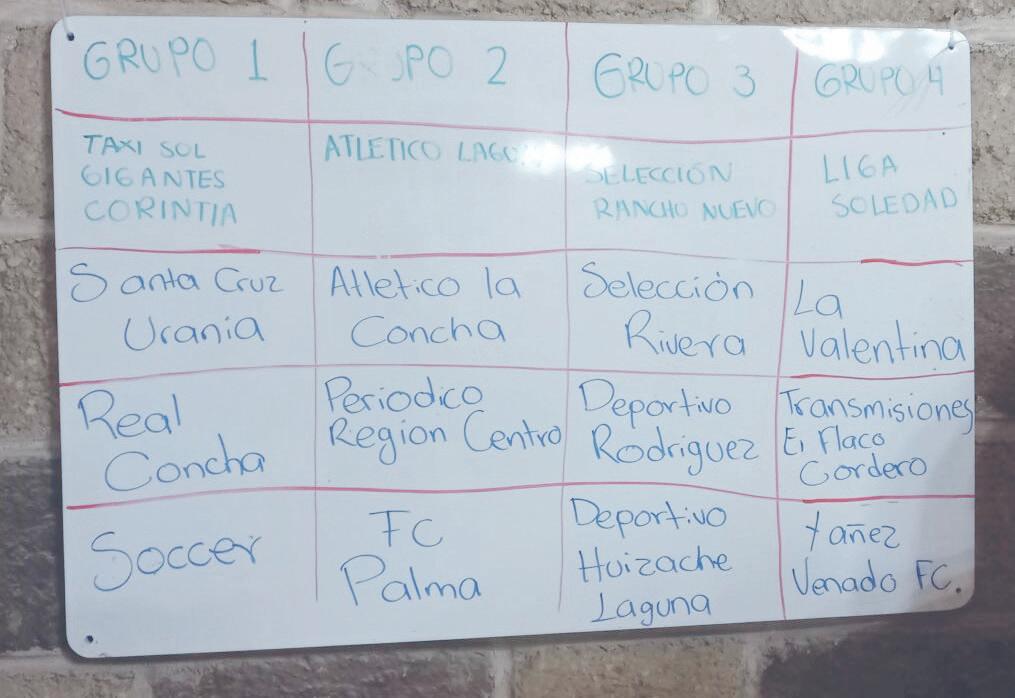 GRUPO 1
TAXI SOL
GIGANTES
CORINTIA
Santa Cruz
Urania
Real
Concha
Soccer
2
ATLETICO
Atletico la
Concha
Periodico
Region Centro
FC
Palma
GRUPO 3
SELECCIÓN
RANCHO NUEVO
Selección
Rivera
Deportivo
Rodriguez
Deportivo
Huizache
Laguna
GRUPO 4
LIGA
SOLEDAD
La
Valentina
Transmisiones
El Flaco
Cordero
Yañez
Venado FC.